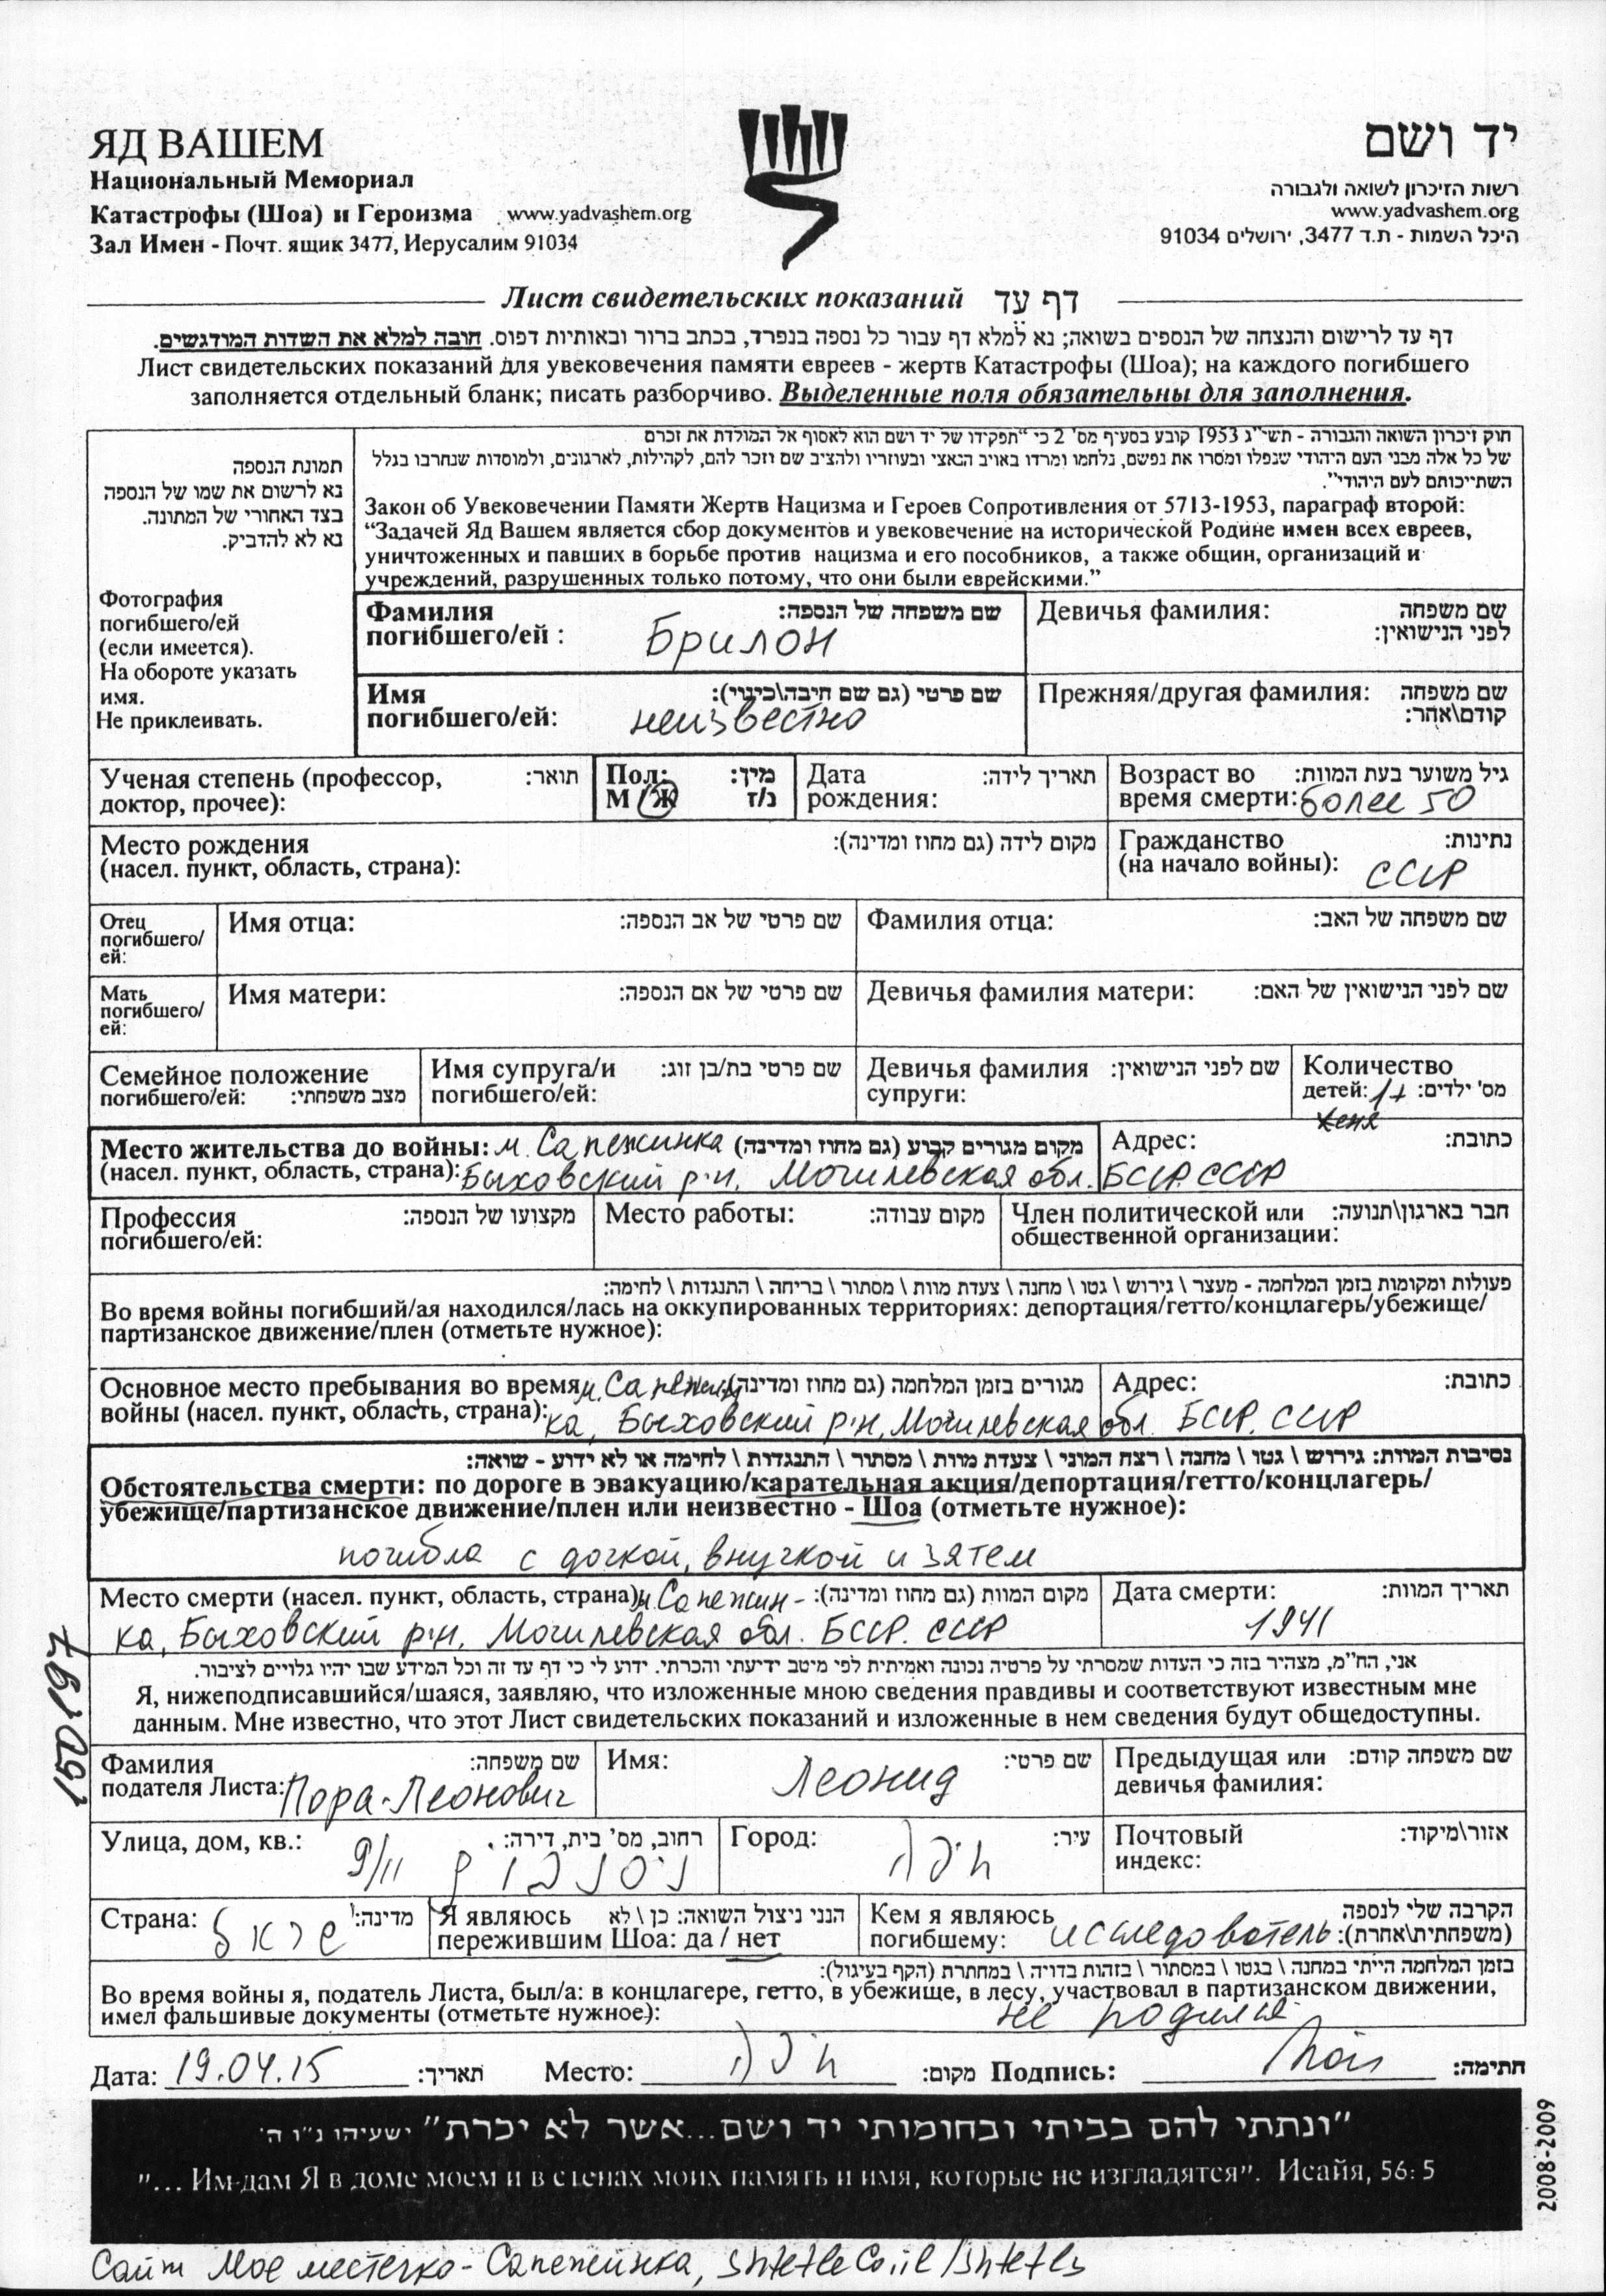 ЯД ВАШЕМ
Национальный Мемориал
Катастрофы (Шоа) и Героизма www.yadvashem.org
Зал Имен - Почт. ящик 3477, Иерусалим 91034
יד ושם
רשות הזיכרון לשואה ולגבורה
www.yadvashem.org
היכל השמות - ת.ד 3477, ירושלים 91034
Лист свидетельских показаний דף עד
דף עד לרישום והנצחה של הנספים בשואה; נא למלא דף עבור כל נספה בנפרד, בכתב ברור ובאותיות דפוס. חובה למלא את השדות המודגשים.
Лист свидетельских показаний для увековечения памяти евреев - жертв Катастрофы (Шоа); на каждого погибшего
заполняется отдельный бланк; писать разборчиво. Выделенные поля обязательны для заполнения.
תמונת הנספה
נא לרשום את שמו של הנספה
בצד האחורי של המתונה.
נא לא להדביק.
Фотография
погибшего/ей
(если имеется).
На обороте указать
имя.
Не приклеивать.
חוק זיכרון השואה והגבורה - תשי"ג 1953 קובע בסעיף מס' 2 כי "תפקידו של יד ושם הוא לאסוף אל המולדת את זכרם
של כל אלה מבני העם היהודי שנפלו ומסרו את נפשם, נלחמו ומרדו באויב הנאצי ובעוזריו ולהציב שם וזכר להם, לקהילות, לארגונים, ולמוסדות שנחרבו בגלל
השתייכותם לעם היהודי".
Закон об Увековечении Памяти Жертв Нацизма и Героев Сопротивления от 5713-1953, параграф второй:
“Задачей Яд Вашем является сбор документов и увековечение на исторической Родине имен всех евреев,
уничтоженных и павших в борьбе против нацизма и его пособников, а также общин, организаций и
учреждений, разрушенных только потому, что они были еврейскими.”
Фамилия שם משפחה של הנספה:
погибшего/ей : Брилон
Девичья фамилия: שם משפחה
לפני הנישואין:
Имя שם פרטי (גם שם חיבה\כינוי):
погибшего/ей: неизвестно
Прежняя/другая фамилия: שם משפחה
קודם\אחר:
Ученая степень (профессор, תואר:
доктор, прочее):
Пол: מין:
М / Ж ז/נ
Дата תאריך לידה:
рождения:
Возраст во גיל משוער בעת המוות:
время смерти: более 50
Место рождения מקום לידה (גם מחוז ומדינה):
(насел. пункт, область, страна):
Гражданство נתינות:
(на начало войны): СССР
Отец
погибшего/
ей:
Имя отца: שם פרטי של אב הנספה:
Фамилия отца: שם משפחה של האב:
Мать
погибшего/
ей:
Имя матери: שם פרטי של אם הנספה:
Девичья фамилия матери: שם לפני הנישואין של האם:
Семейное положение
погибшего/ей: מצב משפחתי:
Имя супруга/и שם פרטי בת/בן זוג:
погибшего/ей:
Девичья фамилия שם לפני הנישואין:
супруги:
Количество
детей: 1+ מס' ילדים:
Хеня
Место жительства до войны: м. Сапежинка מקום מגורים קבוע (גם מחוז ומדינה)
(насел. пункт, область, страна): Быховский р-н, Могилевская обл. БССР. СССР
Адрес: כתובת:
Профессия מקצועו של הנספה:
погибшего/ей:
Место работы: מקום עבודה:
Член политической или חבר בארגון\תנועה:
общественной организации:
פעולות ומקומות בזמן המלחמה - מעצר \ גירוש \ גטו \ מחנה \ צעדת מוות \ מסתור \ בריחה \ התנגדות \ לחימה:
Во время войны погибший/ая находился/лась на оккупированных территориях: депортация/гетто/концлагерь/убежище/
партизанское движение/плен (отметьте нужное):
Основное место пребывания во время м. Сапежин מגורים בזמן המלחמה (גם מחוז ומדינה):
войны (насел. пункт, область, страна): ка, Быховский р-н, Могилевская обл. БССР. СССР
Адрес: כתובת:
נסיבות המוות: גירוש \ גטו \ מחנה \ רצח המוני \ צעדת מוות \ מסתור \ התנגדות \ לחימה או לא ידוע - שואה:
Обстоятельства смерти: по дороге в эвакуацию/карательная акция/депортация/гетто/концлагерь/
убежище/партизанское движение/плен или неизвестно - Шоа (отметьте нужное):
погибла с дочкой, внучкой и зятем
Место смерти (насел. пункт, область, страна): м. Сапежин- מקום המוות (גם מחוז ומדינה):
ка, Быховский р-н, Могилевская обл. БССР. СССР
Дата смерти: תאריך המוות:
1941
אני, הח"מ, מצהיר בזה כי העדות שמסרתי על פרטיה נכונה ואמיתית לפי מיטב ידיעתי והכרתי. ידוע לי כי דף עד זה וכל המידע שבו יהיו גלויים לציבור.
Я, нижеподписавшийся/шаяся, заявляю, что изложенные мною сведения правдивы и соответствуют известным мне
данным. Мне известно, что этот Лист свидетельских показаний и изложенные в нем сведения будут общедоступны.
Фамилия שם משפחה:
подателя Листа: Пора-Леонович
Имя: Леонид שם פרטי:
Предыдущая или שם משפחה קודם:
девичья фамилия:
Улица, дом, кв.: רחוב, מס' בית, דירה:
9/11
Город: חיפה עיר:
Почтовый אזור\מיקוד:
индекс:
Страна: ישראל מדינה:
Я являюсь הנני ניצול השואה: כן \ לא
пережившим Шоа: да / нет
Кем я являюсь הקרבה שלי לנספה
погибшему: исследователь (משפחתית\אחרת):
בזמן המלחמה הייתי במחנה \ בגטו \ במסתור \ בזהות בדויה \ במחתרת (הקף בעיגול):
Во время войны я, податель Листа, был/а: в концлагере, гетто, в убежище, в лесу, участвовал в партизанском движении,
имел фальшивые документы (отметьте нужное): не родился
Дата: 19.04.15 תאריך: Место: חיפה מקום: Подпись: חתימה:
"ונתתי להם בביתי ובחומותי יד ושם...אשר לא יכרת" ישעיהו נ"ו ה'
"... Им-дам Я в доме моем и в стенах моих память и имя, которые не изгладятся". Исайя, 56: 5
150197
2008-2009
Сайт Мое местечко - Сапежинка, shtetle.co.il/shtetls